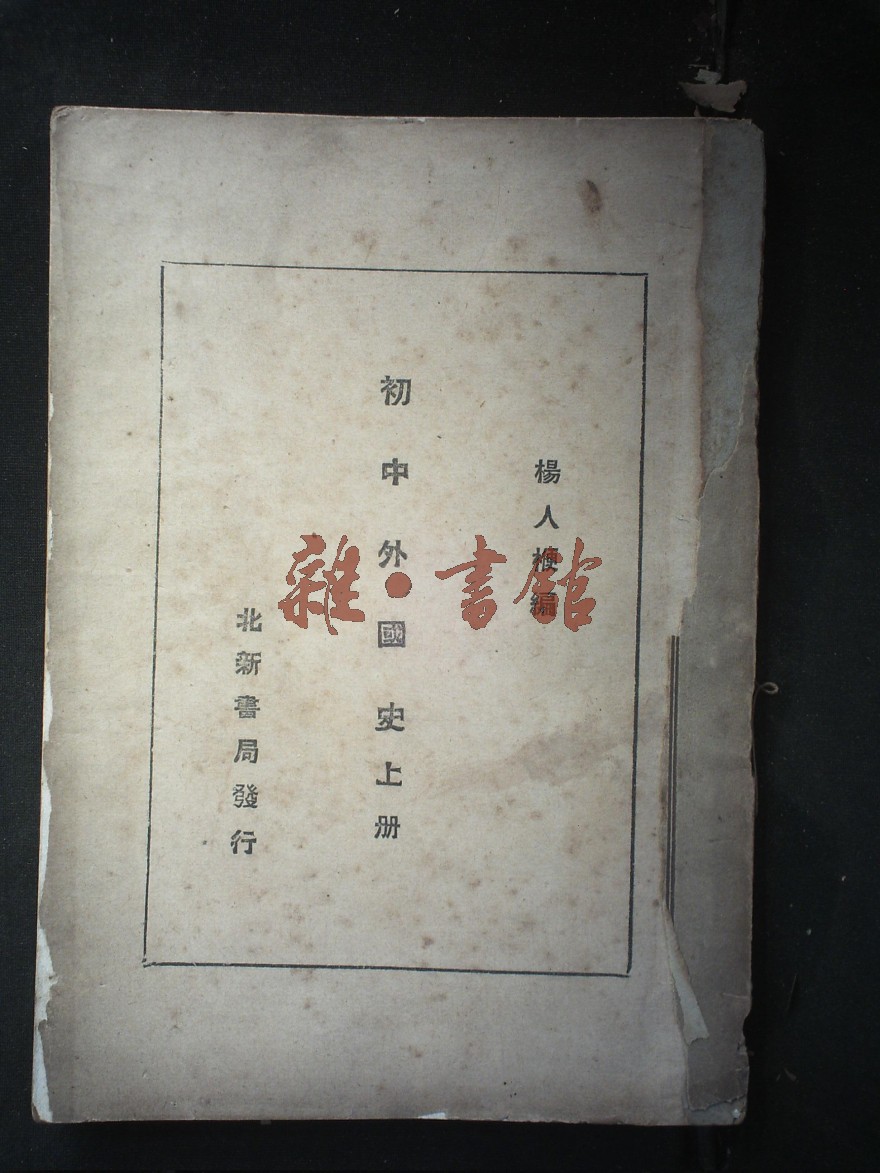 楊人楩編
初中外國史上册
北新書局發行
雜·書館